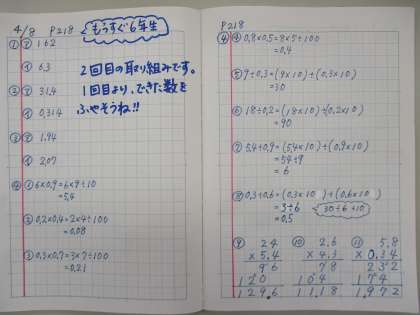 4/8 P218
もうすぐ6年生
① ㋐ 162
㋑ 6.3
② ㋐ 31.4
㋑ 0.314
③ ㋐ 1.94
㋑ 2.07
2回目の取り組みです。
1回目より、できた数を
ふやそうね!!
④ ① 6×0.9=6×9÷10
=5.4
② 0.2×0.4=2×4÷100
=0.08
③ 0.3×0.7=3×7÷100
=0.21
P218
④ ④ 0.8×0.5=8×5÷100
=0.4
⑤ 9÷0.3=(9×10)÷(0.3×10)
=30
⑥ 18÷0.2=(18×10)÷(0.2×10)
=90
⑦ 5.4÷0.9=(5.4×10)÷(0.9×10)
=54÷9
=6
⑧ 0.3÷0.6=(0.3×10)÷(0.6×10)
=3÷6
=0.5
30÷6÷10
⑨ 24
×5.4
96
120
129.6
⑩ 2.6
×4.3
78
104
11.18
⑪ 5.8
×0.34
232
174
1.972